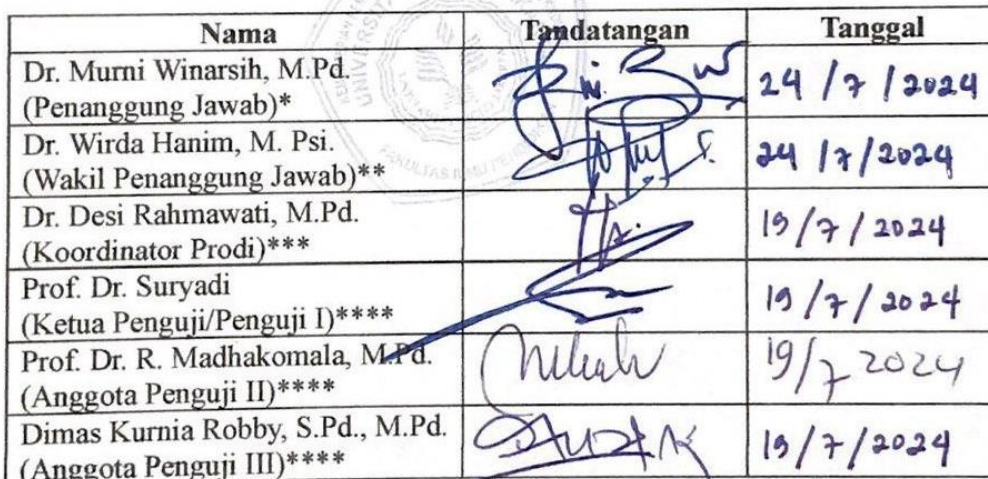 Nama Tandatangan Tanggal
Dr. Murni Winarsih, M.Pd.
(Penanggung Jawab)* 24/7/2024
Dr. Wirda Hanim, M. Psi.
(Wakil Penanggung Jawab)** 24/7/2024
Dr. Desi Rahmawati, M.Pd.
(Koordinator Prodi)*** 19/7/2024
Prof. Dr. Suryadi
(Ketua Penguji/Penguji I)**** 19/7/2024
Prof. Dr. R. Madhakomala, M.Pd.
(Anggota Penguji II)**** 19/7 2024
Dimas Kurnia Robby, S.Pd., M.Pd.
(Anggota Penguji III)**** 19/7/2024